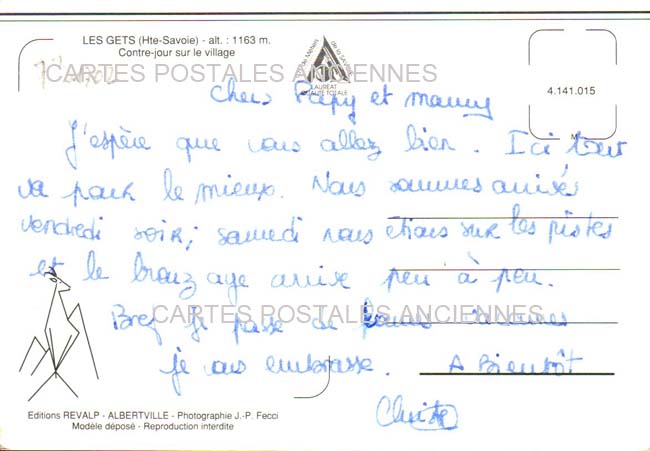 LES GETS (Hte-Savoie) - alt. : 1163 m.
Contre-jour sur le village
CARTES POSTALES ANCIENNES
LAURÉAT
QUALITÉ TOTALE
4.141.015
Chers Papy et mamy
J'espère que vous allez bien. Ici tout
va pour le mieux. Nous sommes arrivés
vendredi soir; samedi nous étions sur les pistes
et le bronzage arrive peu à peu.
CARTES POSTALES ANCIENNES
Bref je passe de bonnes vacances
je vous embrasse. A Bientôt
Editions REVALP - ALBERTVILLE - Photographie J.-P. Fecci
Modèle déposé - Reproduction interdite